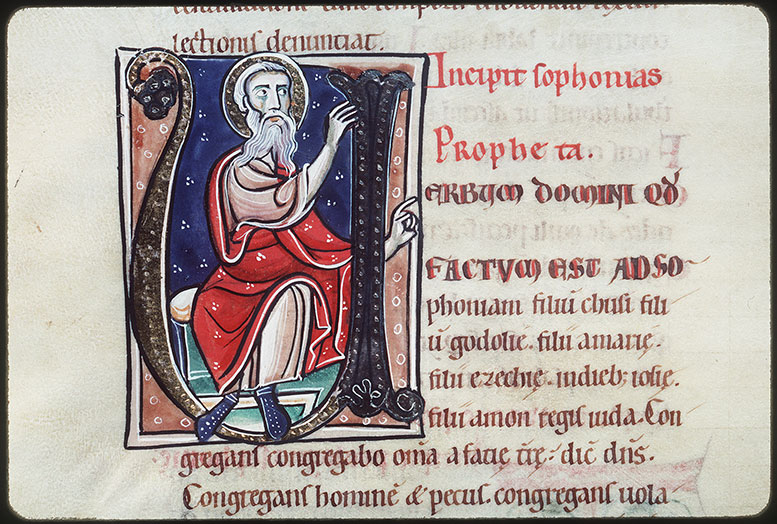 lectionis denunciat
Incipit sophonias
Propheta.
VERBUM DOMINI QD
FACTUM EST AD SO
phoniam filiũ chusi fili
ũ godolię. filii amarię.
filii ezechię. indieb; iosię.
filii amon regis iuda. Con
gregans congregabo om̃a a facie tr̃ę: dic̃ dñs.
Congregans hominẽ & pecus. congregans uola